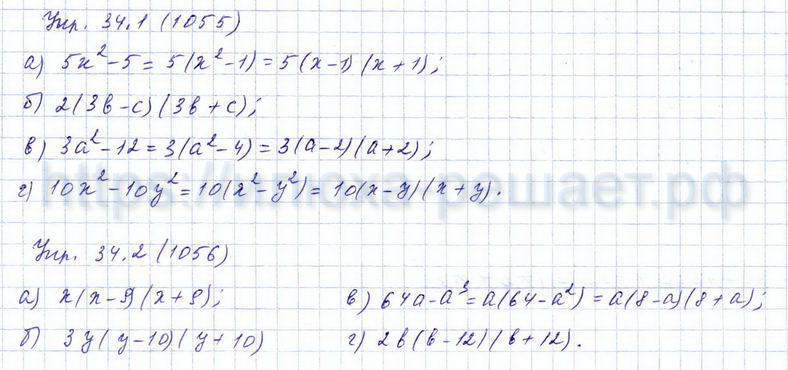 Упр. 34.1 (1055)
а) 5x² - 5 = 5(x² - 1) = 5(x - 1)(x + 1);
б) 2(3b - c)(3b + c);
в) 3a² - 12 = 3(a² - 4) = 3(a - 2)(a + 2);
г) 10x² - 10y² = 10(x² - y²) = 10(x - y)(x + y).
Упр. 34.2 (1056)
а) x(x - 9)(x + 9);
б) 3y(y - 10)(y + 10)
в) 64a - a³ = a(64 - a²) = a(8 - a)(8 + a);
г) 2b(b - 12)(b + 12).